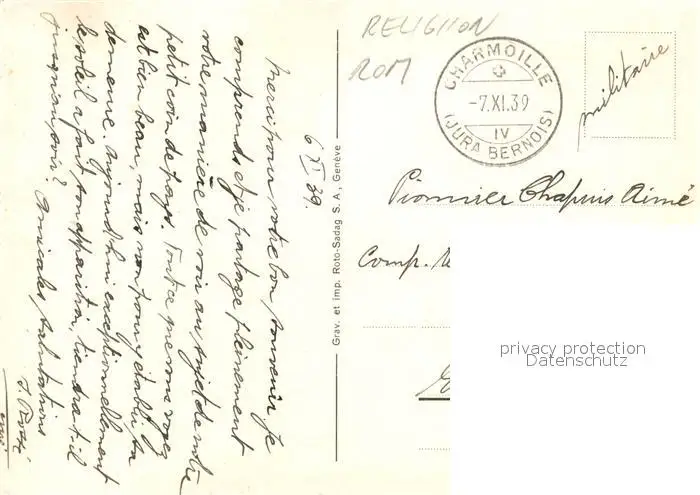 RELIGIION
ROM
CHARMOILLE
-7.XI.39
IV
(JURA BERNOIS)
militaire
6 XI 39
Merci pour votre bon souvenir je
comprends et je partage pleinement
votre manière de voir au sujet de notre
petit coin de pays. Tout ce que vous voyez
est bien beau, mais non pour y établir sa
demeure. Aujourd'hui exceptionnellement
le soleil a fait son apparition, tiendra-t-il
jusqu'au soir? Amicales salutations
Grav. et imp. Roto-Sadag S. A., Genève
Pionnier Chapuis Aimé
Comp.
privacy protection
Datenschutz